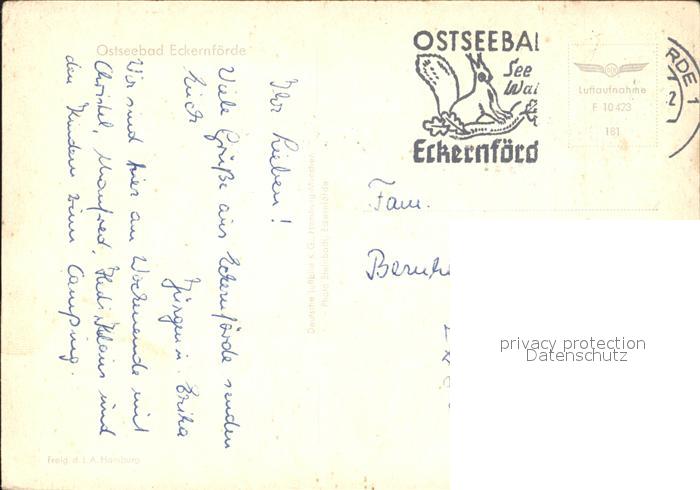 Ostseebad Eckernförde
Ihr Lieben!
Viele Grüße aus Eckernförde senden
Euch
Jürgen u. Erika
Wir sind hier am Wochenende mit
Christel, Manfred, Klaus und
den Kindern zum Camping.
Freig. d. L.A. Hamburg
Deutsche Luftbild K.G., Hamburg
Photo Steinbach, Eckernförde
OSTSEEBA
See
Wal
Eckernförd
Luftaufnahme
F 10 423
181
RDE 1
2
Fam.
privacy protection
Datenschutz